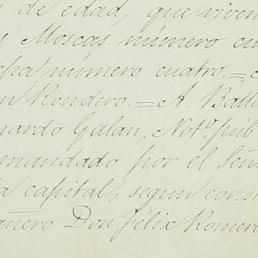 de edad, que viven
Moscas número cu
número cuatro.=
n Rondero.=A. Balle
nardo Galan, Notº. púb
mandado por el Seño
a capital, segun cons
añero Don Félix Romero